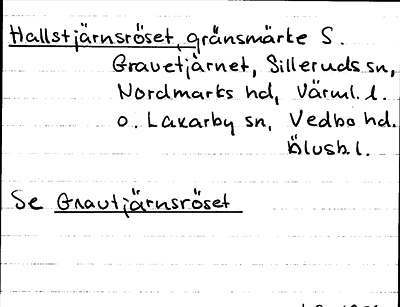 Hallstjärnsröset, gränsmärke S.
Gravetjärnet, Silleruds sn,
Nordmarks hd, Värml. l.
o. Laxarby sn, Vedbo hd.
Älvsb. l.
Se Grautjärnsröset